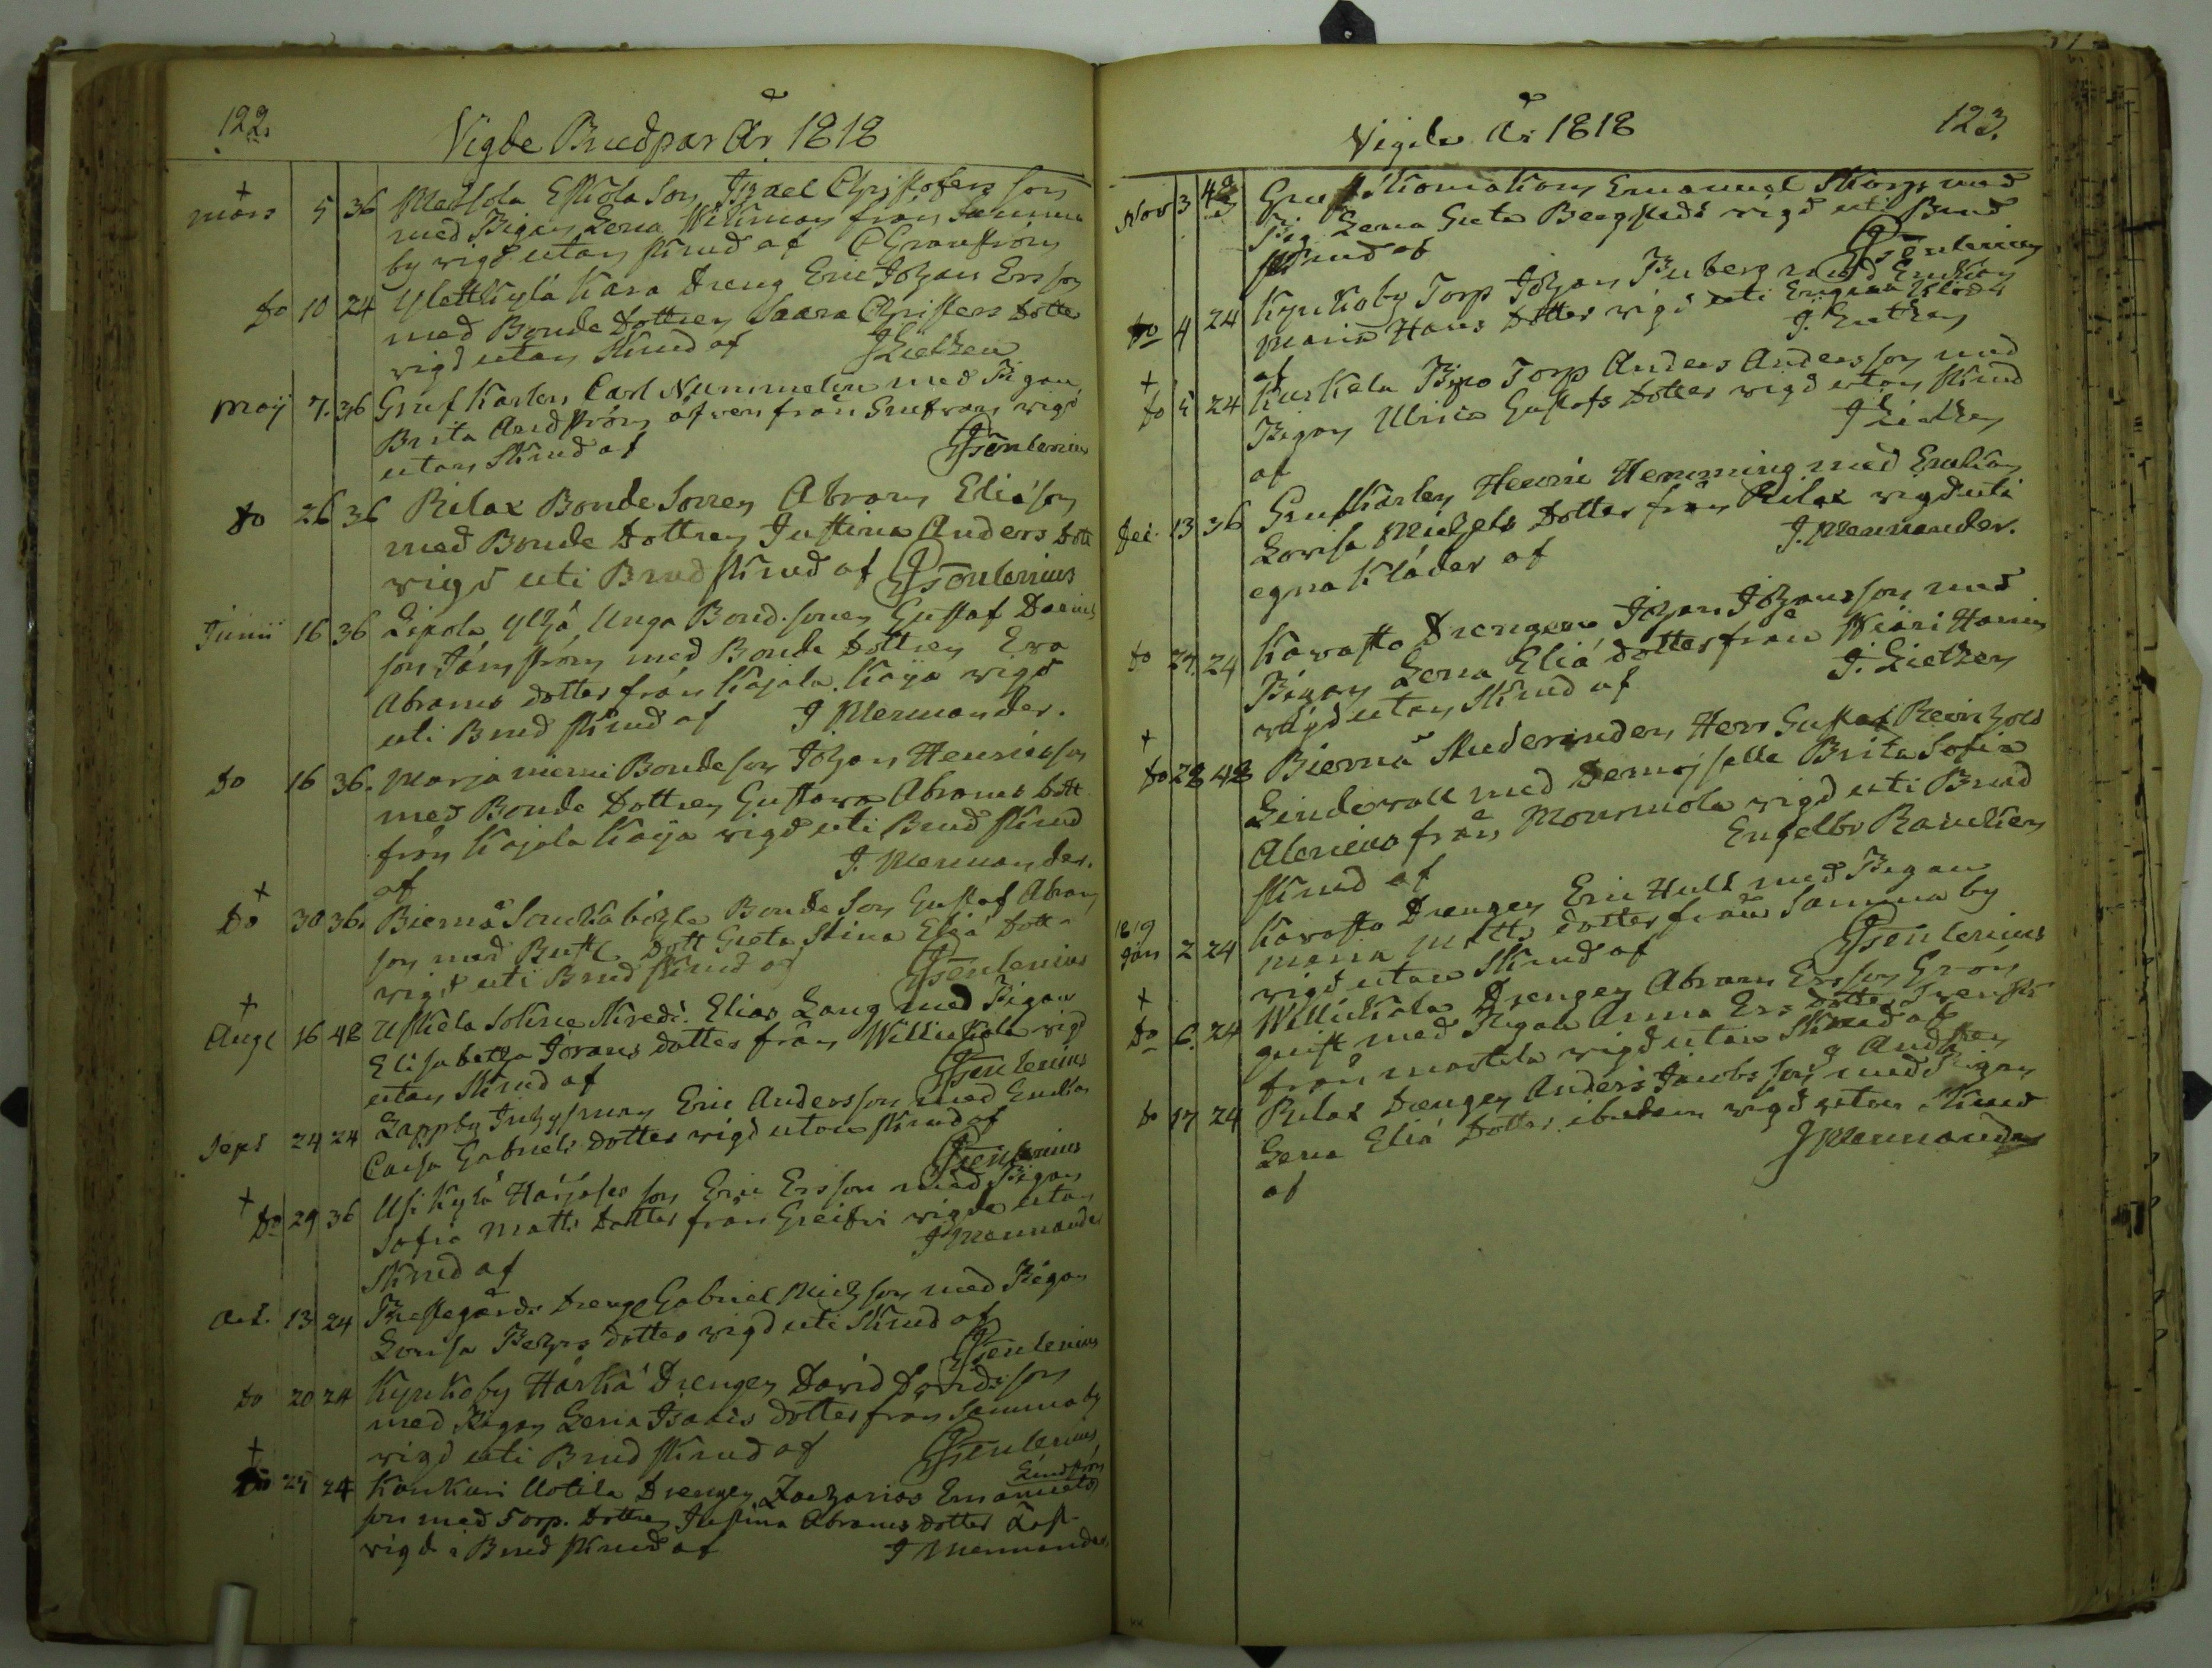 122.
Vigde Brudpar År 1818
Mars 5 36 Matsola Eskola Son Israel Christofers son
med Pigan Lena Wikman från Samma
by vigd utan skrud af C Granström
do 10 24 Ylattkylä Kara Dreng Eric Johan Ersson
med Bonde Dottren Saara Christers Dotter
vigd utan Skrud af J Lietzen
Maij 7. 36 Grufkarlen Carl Nummelin med Pigan
Brita Andström äfven från Grufvan vigd
utan Skrud af
do 26 36 Rilax Bonde Sonen Abram Eliäson
med Bonde Dottren Justina Anders Dott
vigd uti Brud skrud af
Junii 16 36 Lipola Yhjä Unga Bond. sonen Gustaf
son Jernström med Bonde Dottren Eva
Abrams dotter från Kajala Kaija vigd
uti Brud skrud af J Mennander.
do 16 36. Marjaniemi Bondeson Johan Henricsson
med Bonde Dottren Gustava Abrams dott
från Kajala Kaija vigd uti Brud skrud
af J. Mennander.
do 30 36. Biernå Bonde Son Gustaf Abram
son med Dott Greta Stina Eliä Dott
vigd uti Brud skrud af
Aug 16 48 Uskela Sokne Skredd. Elias Lang med Pigan
Elisabetha Jörans dotter från Williskala vigd
utan Skrud af
Sept 24 24 Lappby Eric Andersson med Enkan
Caisa Gabriels dotter vigd utan skrud af
do 29 36 Eric Ersson med Pigan
Sofia Matts Dotter från vigde utan
Skrud af J Mennander
Oct. 13 24 Prestegårds Dreng Gabriel Michson med Pigan
Lovisa dotter vigd uti Skrud af
do 20 24 Kyrkoby Härkä Drengen David Davidsson
med Pigan Lena Isaacs dotter från Samma by
vigd uti Brud skrud af
do 25 24 Kankari Uotila Drengen Zacharias Emanuels
Lindström
son med Torp. Dottren Justina Abrams dotter
vigd i Brud skrud af J Mennander
Vigde År 1818
123.
Nov 3 48 Emanuel Skogs med
Pig. Lena Greta Bergstedt vigd uti Brud
skrud af
do 4 24 Kyrkoby Torp Johan Friberg med Enkan
Maria Hans Dotter vigd uti Egna Kläder
af J. Lietzen
do 5 24 Kurkela Torp Anders Andersson med
Pigan Ulrica Gustafs Dotter vigd utan skrud
af J Lietzen
Dec. 13 36 Grufkarlen Henric Hemming med Enkan
Lovisa Michels Dotter från Rilax vigd uti
egna Kläder af J. Mennander.
do 27. 24 Kavasto Drengen Johan Johansson med
Pigan Lena Eliä dotter från
vigd utan Skrud af J. Lietzen
do 28 48 Biernå Studeranden Herr Gustaf Reinhold
Lindevall med Demoiselle Brita Sofia
Alenius från Mourmola vigd uti Brud
skrud af Engelbr Rancken
1819
Jan 2 24 Kavasto Drengen Eric Hult med Pigan
Maria Matts dotter från Samma by
vigd utan Skrud af
do 6. 24 Williskala Drengen Abram Ersson Grön
quist med Pigan Anna Ers dotter
från Martila vigd utan Skrud af
do 17 24 Rilax Drengen Anders Jacobsson med Pigan
Lena Eliä Dotter ibidem vigd utan Skrud
af J Mennander